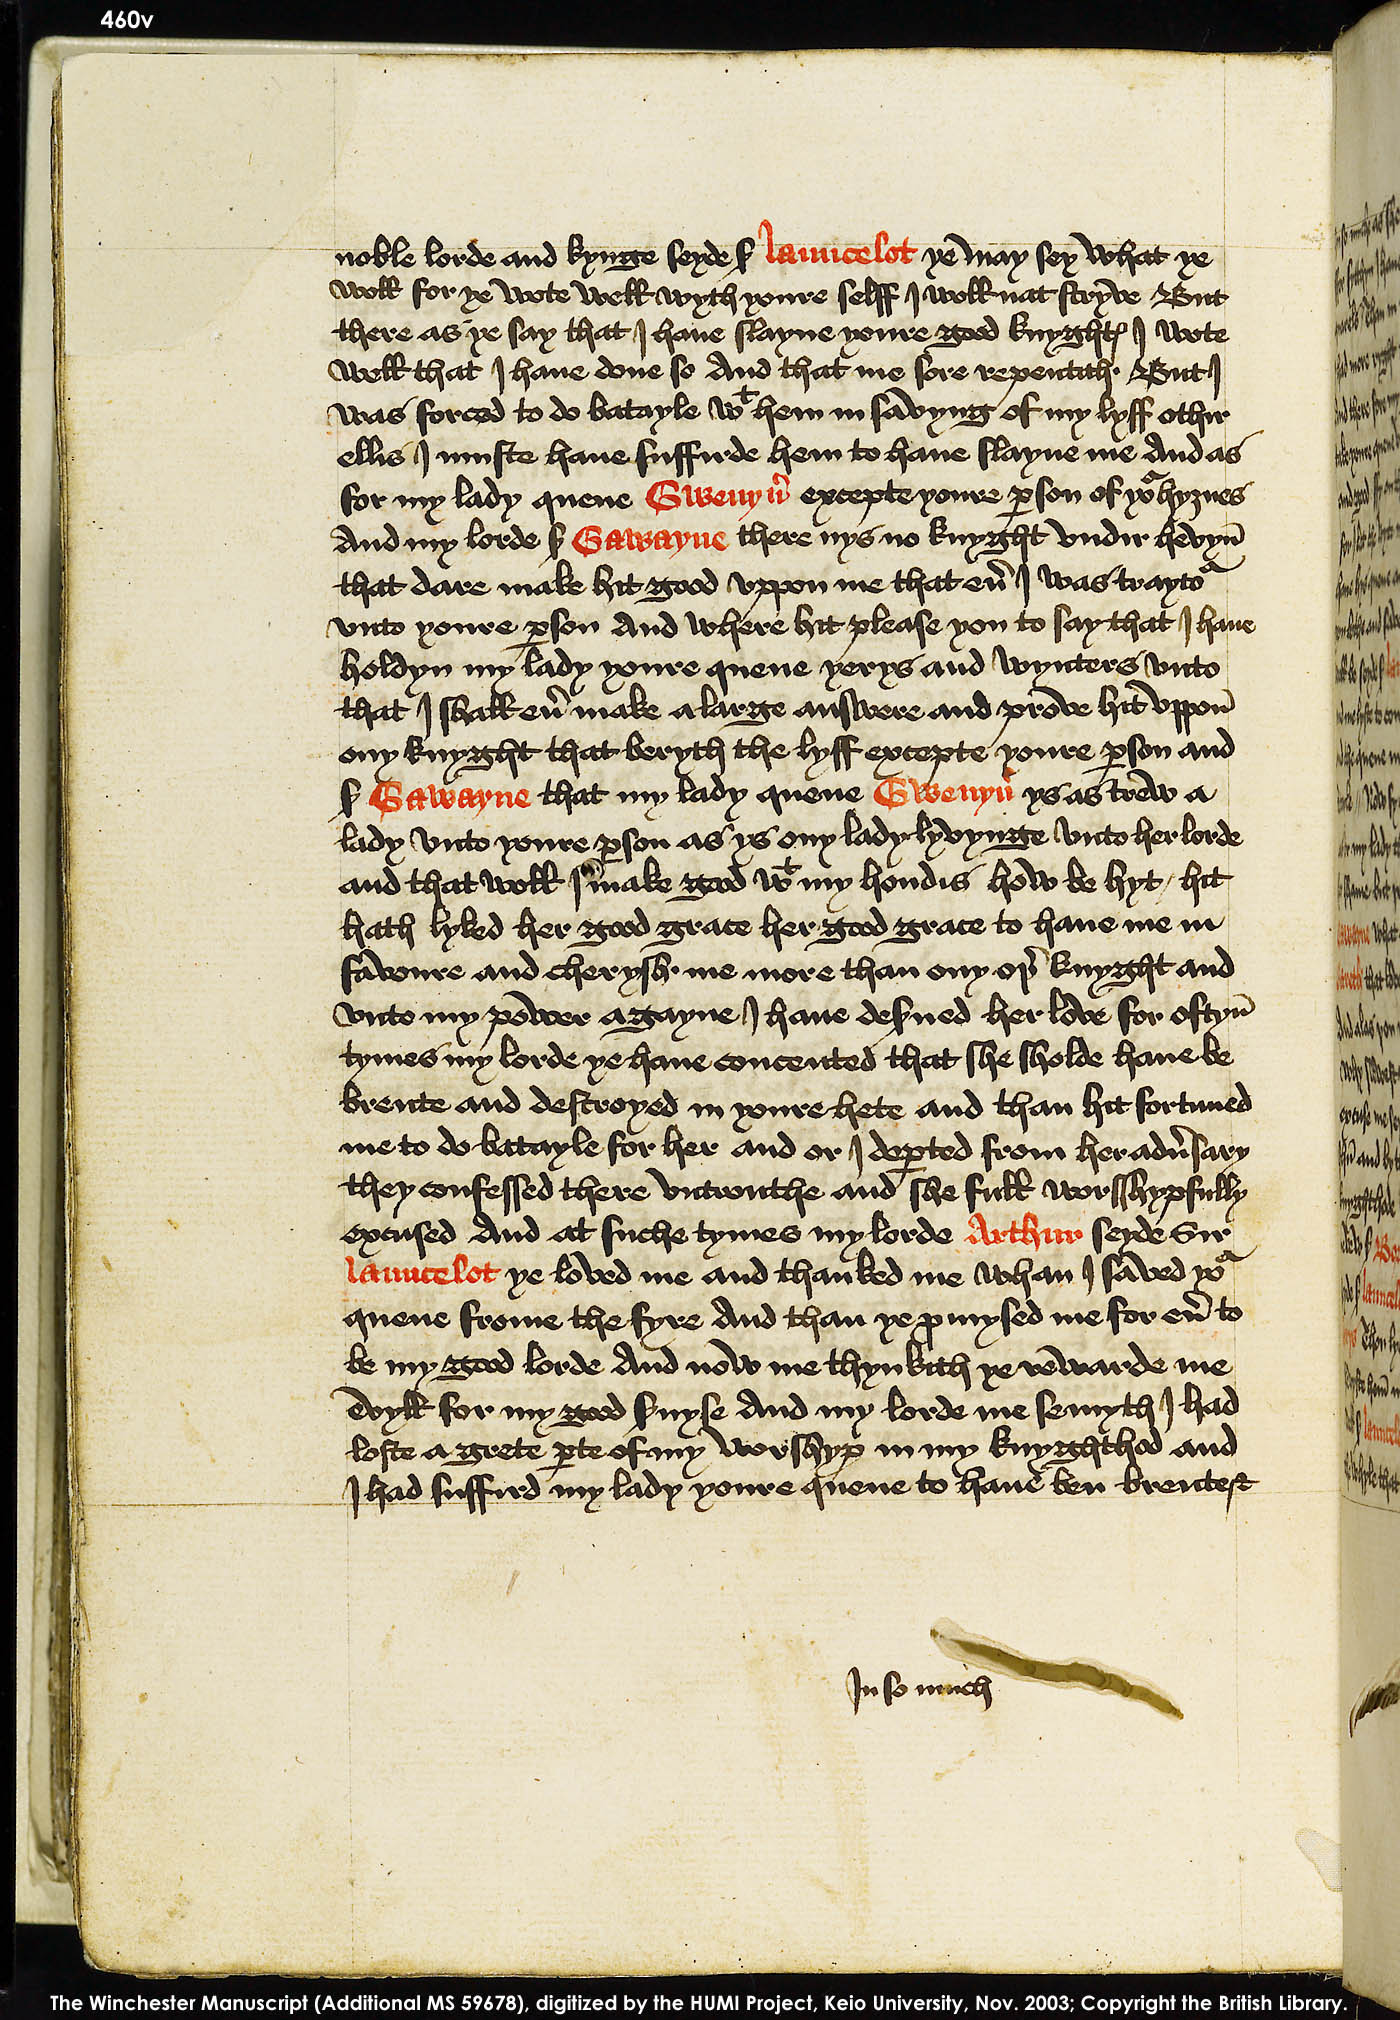 460v
noble lorde and kynge seyde sr Launcelot ye may sey what ye
woll for ye wote well wyth youre selff I woll nat stryve But
there as ye say that I haue slayne youre good knyghtꝭ I wote
well that I haue done so And that me sore repentith · But I
was forced to do batayle wt hem in savyng of my lyff othir
ellis I muste haue suffirde hem to haue slayne me And as
for my lady quene Gwenyu̓ excepte youre ꝑson of yor hyznes
And my lorde sr Gawayne there nys no knyght vndir hevyn̄
that dare make hit good vppon me that eu̓ I was traytor
vnto youre ꝑson And where hit please you to say that I haue
holdyn my lady youre quene yerys and wynters vnto
that I shall eu̓ make a large answere and prove hit vppon̄
ony knyght that beryth the lyff excepte youre ꝑson and
sr Gawayne that my lady quene Gwenyu̓ ys as trew a
lady vnto youre ꝑson as ys ony lady lyvynge vnto her lorde
and that woll I make good wt my hondis how be hyt / hit
hath lyked her good grace her good grace to haue me in
favoure and cherysh · me more than ony oþ̓ knyght and
vnto my power agayne I haue des̓ued her love for oftyn̄
tymes my lorde ye haue concented that she sholde haue be
brente and destroyed in youre hete and than hit fortuned
me to do batayle for her and or I deꝑted from her adu̓sary
they confessed there vntrouthe and she full worsshypfully
excused And at suche tymes my lorde Arthur seyde Sir
Launcelot ye loved me and thanked me whan I saved yor
quene frome the fyre And than ye ꝓmysed me for eu̓ to
be my good lorde And now me thynkith ye rewarde me
evyll for my good s̓uyse And my lorde me semyth I had
loste a grete ꝑte of my worshyp in my knyghthod and
I had suffird my lady youre quene to haue ben brente
In so much
The Winchester Manuscript (Additional MS 59678), digitized by the HUMI Project, Keio University, Nov. 2003; Copyright the British Library.